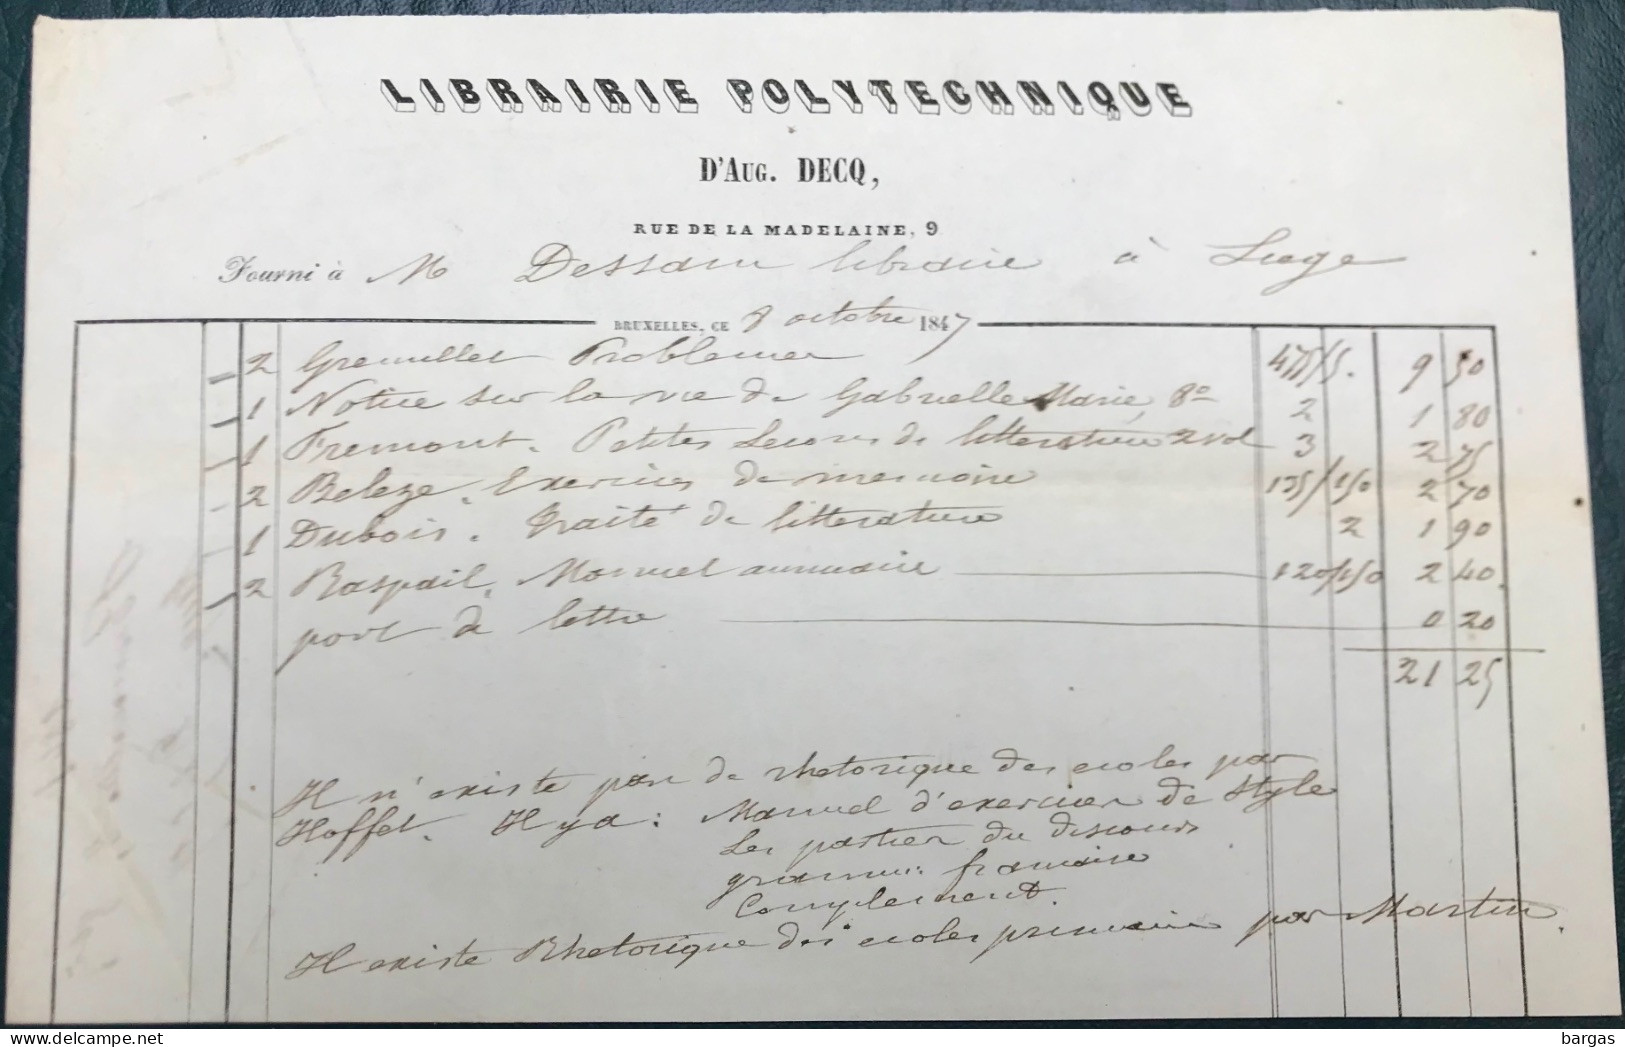 LIBRAIRIE POLYTECHNIQUE
D'AUG. DECQ,
RUE DE LA MADELAINE, 9
Fourni à M Dessain libraire à Liege
BRUXELLES, CE 8 octobre 1847
2 Gremillet Problemes 475/5. 9 50
1 Notice sur la vie de Gabrielle Marie, 8o 2 1 80
1 Fremont. Petites Lecons de litterature 2 vol 3 2 75
2 Beleze. Exercices de memoire 135/150 2 70
1 Dubois. Traité de litterature 2 1 90
2 Raspail. Manuel annuaire 120/150 2 40.
port de lettre 0 20
21 25
Il n'existe pas de rhetorique des ecoles par
Hoffet. Il y a: Manuel d'exercices de Style
Les parties du discours
gramm: francaise
Complement.
Il existe Rhetorique des ecoles primaires par Martin.
bargas